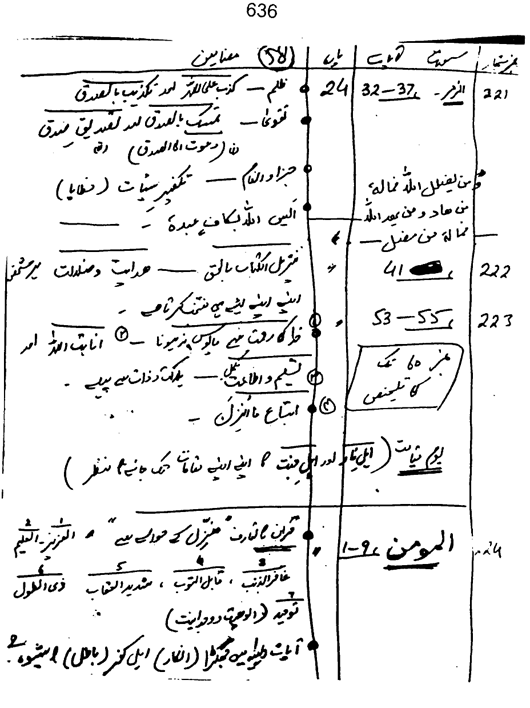 636
نمبر شمار سورت آیات پارہ (58) مضامین
221 الزمر۔ 32–37، 24 ظلم — کذب علی اللہ اور تکذیب بالصدق
تقویٰ — تمسک بالصدق اور تصدیق صدق
(دعوت الی الصدق)
جزاء و انعام — تکفیر سیئات (خطایا)
ومن یضلل اللہ فمالہ
من ھاد ومن یھد اللہ
فمالہ من مضل —
الیس اللہ بکاف عبدہ —
222 41 تنزیل الکتاب بالحق — ہدایت و ضلالت
اپنے اپنے لئے ہی
223 53–55، ① خدا کی رحمت سے مایوس نہ ہونا — ② انابت الی اللہ اور
③ تسلیم و اطاعت — ہلاکت ذات سے پہلے ۔
④ اتباع ما انزل ۔
نمبر 60 تک
کا تلخیص
یوم قیامت (اہل نار اور اہل جنت کا اپنے اپنے مقامات تک جانے کا منظر)
224 المومن 1–9، قرآن کا تعارف "منزل کے حوالے سے" 1 العزیز 2 العلیم
3 غافر الذنب، 4 قابل التوب، 5 شدید العقاب 6 ذی الطول
7 توحید (الوھیت و وحدانیت)
آیات الہیہ میں جھگڑا (انکار) اہل کفر (باطل) کا شیوہ ہے